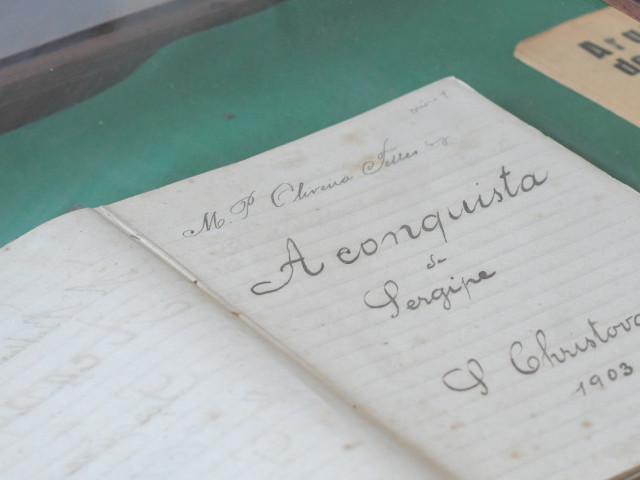 M. P. Oliveira Telles
A conquista
de
Sergipe
S Christova
1903
Aru
de